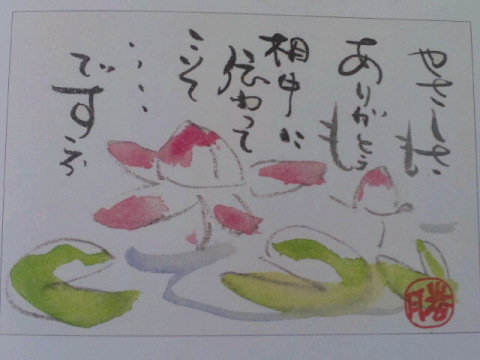 やさしさも
ありがとうも
相手に
伝わって
こそ
・・・・
ですネ